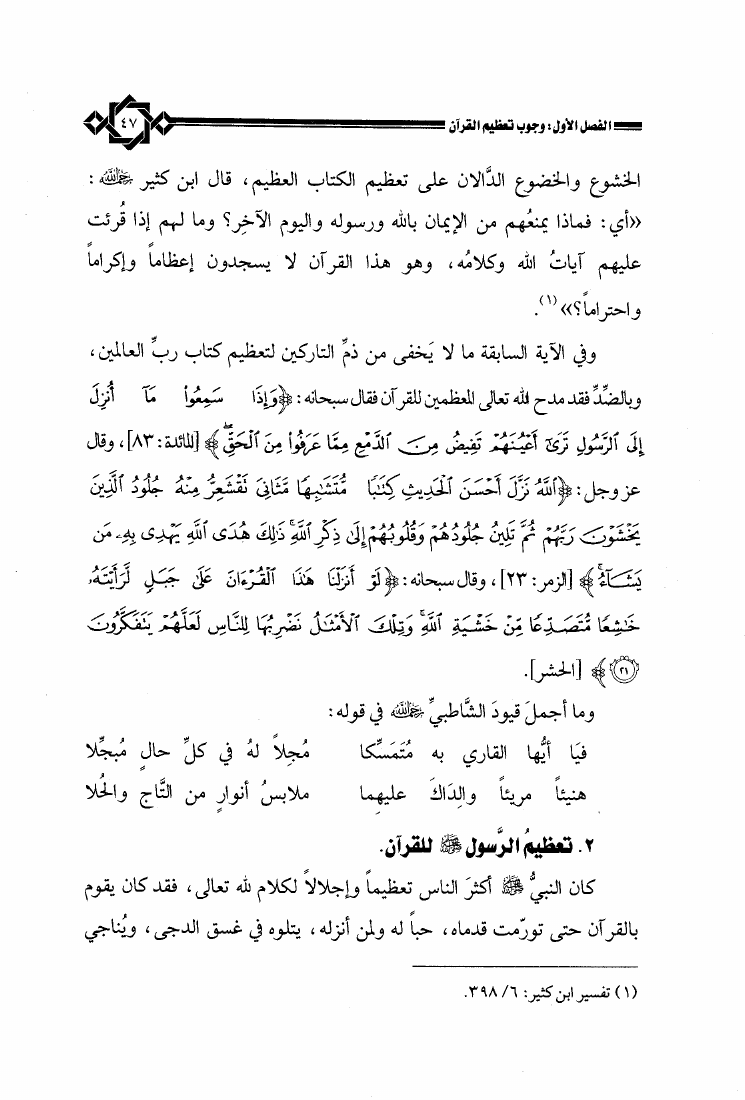 الفصل الأول: وجوب تعظيم القرآن ٤٧
الخشوع والخضوع الدَّالان على تعظيم الكتاب العظيم، قال ابن كثير رحمه الله:
«أي: فماذا يمنعُهم من الإيمان بالله ورسوله واليوم الآخِر؟ وما لهم إذا قُرئت
عليهم آياتُ الله وكلامُه، وهو هذا القرآن لا يسجدون إعظاماً وإكراماً
واحتراماً؟»(١).
وفي الآية السابقة ما لا يَخفى من ذمِّ التاركين لتعظيم كتاب ربِّ العالمين،
وبالضِّدِّ فقد مدح لله تعالى المعظمين للقرآن فقال سبحانه: ﴿وَإِذَا سَمِعُوا۟ مَآ أُنزِلَ
إِلَى ٱلرَّسُولِ تَرَىٰٓ أَعْيُنَهُمْ تَفِيضُ مِنَ ٱلدَّمْعِ مِمَّا عَرَفُوا۟ مِنَ ٱلْحَقِّ ۖ﴾ [المائدة: ٨٣]، وقال
عز وجل: ﴿ٱللَّهُ نَزَّلَ أَحْسَنَ ٱلْحَدِيثِ كِتَٰبًا مُّتَشَٰبِهًا مَّثَانِىَ تَقْشَعِرُّ مِنْهُ جُلُودُ ٱلَّذِينَ
يَخْشَوْنَ رَبَّهُمْ ثُمَّ تَلِينُ جُلُودُهُمْ وَقُلُوبُهُمْ إِلَىٰ ذِكْرِ ٱللَّهِ ۚ ذَٰلِكَ هُدَى ٱللَّهِ يَهْدِى بِهِۦ مَن
يَشَآءُ ۚ﴾ [الزمر: ٢٣]، وقال سبحانه: ﴿لَوْ أَنزَلْنَا هَٰذَا ٱلْقُرْءَانَ عَلَىٰ جَبَلٍ لَّرَأَيْتَهُۥ
خَٰشِعًا مُّتَصَدِّعًا مِّنْ خَشْيَةِ ٱللَّهِ ۚ وَتِلْكَ ٱلْأَمْثَٰلُ نَضْرِبُهَا لِلنَّاسِ لَعَلَّهُمْ يَتَفَكَّرُونَ
٢١﴾ [الحشر].
وما أجملَ قيودَ الشَّاطبيِّ رحمه الله في قوله:
فيَا أيُّها القاري به مُتَمَسِّكا مُجِلاً لهُ في كلِّ حالٍ مُبجِّلا
هنيئاً مريئاً والِدَاكَ عليهما ملابسُ أنوارٍ من التَّاج والحُلا
٢. تعظيمُ الرَّسول ﷺ للقرآن.
كان النبيُّ ﷺ أكثرَ الناس تعظيماً وإجلالاً لكلام لله تعالى، فقد كان يقوم
بالقرآن حتى تورّمت قدماه، حباً له ولمن أنزله، يتلوه في غسق الدجى، ويُناجي
(١) تفسير ابن كثير: ٦/ ٣٩٨.